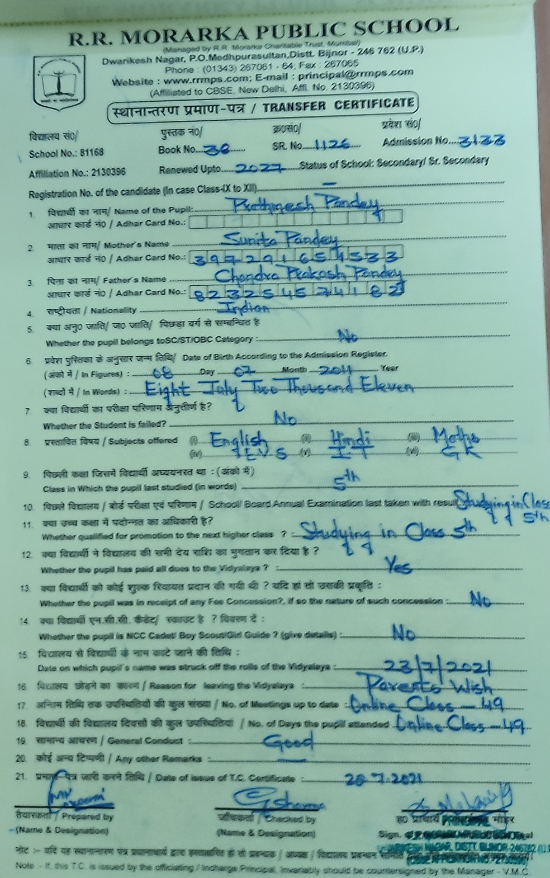 R.R. MORARKA PUBLIC SCHOOL
(Managed by R.R. Morarka Charitable Trust, Mumbai)
Dwarikesh Nagar, P.O.Medhpurasultan,Distt. Bijnor - 246 762 (U.P.)
Phone : (01343) 267061 - 64, Fax : 267065
Website : www.rrmps.com; E-mail : principal@rrmps.com
(Affiliated to CBSE, New Delhi, Affi. No. 2130396)
स्थानान्तरण प्रमाण-पत्र / TRANSFER CERTIFICATE
विद्यालय सं०/ पुस्तक नं०/ क्र०सं०/ प्रवेश सं०/
School No.: 81168 Book No. 36 SR. No. 1126 Admission No. 3133
Affiliation No.: 2130396 Renewed Upto 2027 Status of School: Secondary/ Sr. Secondary
Registration No. of the candidate (In case Class-IX to XII) –
1. विद्यार्थी का नाम/ Name of the Pupil: Prathmesh Pandey
आधार कार्ड नं० / Adhar Card No.:
2. माता का नाम/ Mother's Name Sunita Pandey
आधार कार्ड नं० / Adhar Card No.: 397291654533
3. पिता का नाम/ Father's Name Chandra Prakash Pandey
आधार कार्ड नं० / Adhar Card No.: 8232545741
4. राष्ट्रीयता / Nationality Indian
5. क्या अनु० जाति/ ज० जाति/ पिछड़ा वर्ग से सम्बन्धित है
Whether the pupil belongs toSC/ST/OBC Category : No
6. प्रवेश पुस्तिका के अनुसार जन्म तिथि/ Date of Birth According to the Admission Register.
(अंको में / In Figures) : 08 Day 07 Month 2011 Year
(शब्दों में / In Words) : Eight July Two Thousand Eleven
7. क्या विद्यार्थी का परीक्षा परिणाम अनुत्तीर्ण है?
Whether the Student is failed? No
8. प्रस्तावित विषय / Subjects offered (i) English (ii) Hindi (iii) Maths
(iv) E.V.S (v) I.T (vi) GK
9. पिछली कक्षा जिसमें विद्यार्थी अध्ययनरत था : (अंको में)
Class in Which the pupil last studied (in words) 5th
10. पिछले विद्यालय / बोर्ड परीक्षा एवं परिणाम / School/ Board Annual Examination last taken with result Studying in Class 5th
11. क्या उच्च कक्षा में पदोन्नत का अधिकारी है?
Whether qualified for promotion to the next higher class ? : Studying in Class 5th
12. क्या विद्यार्थी ने विद्यालय की सभी देय राशि का भुगतान कर दिया है ?
Whether the pupil has paid all dues to the Vidyalaya ? : Yes
13. क्या विद्यार्थी को कोई शुल्क रियायत प्रदान की गयी थी ? यदि हां तो उसकी प्रकृति :
Whether the pupil was in receipt of any Fee Concession?, if so the nature of such concession : No
14. क्या विद्यार्थी एन.सी.सी. कैडेट/ स्काउट है ? विवरण दें :
Whether the pupil is NCC Cadet/ Boy Scout/Girl Guide ? (give details) : No
15. विद्यालय से विद्यार्थी के नाम काटे जाने की तिथि :
Date on which pupil's name was struck off the rolls of the Vidyalaya : 23/7/2021
16. विद्यालय छोड़ने का कारण / Reason for leaving the Vidyalaya : Parents Wish
17. अन्तिम तिथि तक उपस्थितियों की कुल संख्या / No. of Meetings up to date : Online Class – 49
18. विद्यार्थी की विद्यालय दिवसों की कुल उपस्थितियाँ / No. of Days the pupil attended Online Class – 49
19. सामान्य आचरण / General Conduct : Good
20. कोई अन्य टिप्पणी / Any other Remarks —
21. प्रमाण पत्र जारी करने तिथि / Date of issue of T.C. Certificate : 28.7.2021
तैयारकर्ता / Prepared by जाँचकर्ता / Checked by ह० प्राचार्य मोहर
(Name & Designation) (Name & Designation) Sign. PRINCIPAL
R.R. MORARKA PUBLIC SCHOOL
DWARIKESH NAGAR, DISTT. BIJNOR-246762
नोट :- यदि यह स्थानान्तरण पत्र प्रधानाचार्य द्वारा
Note :- If, this T.C. is issued by the officiating / Incharge Principal, Invariably should be countersigned by the Manager - V.M.C.